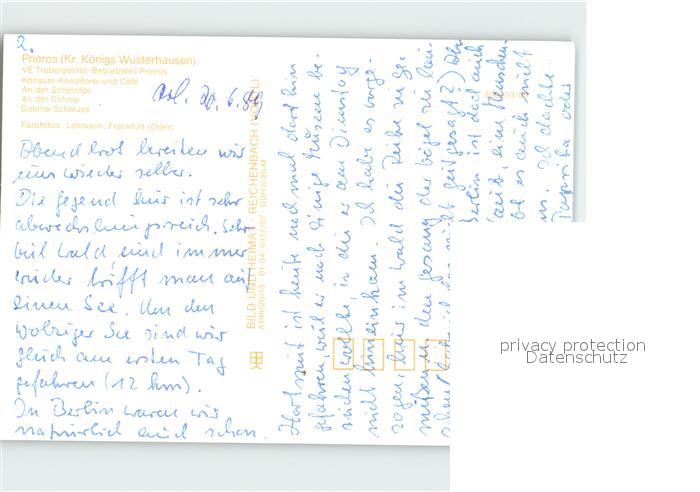 2.
Prieros (Kr. Königs Wusterhausen)
VE Trabergestüt, Betriebsteil Prieros
Konsum-Konditorei und Café
An der Schmölde
An der Dahme
Dahme-Schleuse
Farbfotos: Lehmann, Frankfurt (Oder)
20.6.89
Abendbrot bereiten wir
uns wieder selber.
Die Gegend hier ist sehr
abwechslungsreich. Sehr
viel Wald und immer
wieder trifft man auf
einen See. Um den
Wolziger See sind wir
gleich am ersten Tag
gefahren (12 km).
In Berlin waren wir
natürlich auch schon.
BILD UND HEIMAT REICHENBACH
A1/IIB/26/10 01 04 0417/07
Hartmut ist heute noch mal dorthin
gefahren, weil er noch einige Museen be-
suchen wollte, in die es am Dienstag
nicht hineinkam. Ich habe es vorge-
zogen, hier im Wald die Ruhe zu ge-
nießen u. den Gesang der Vögel zu lau-
Berlin ist doch auch
eine Menschen-
es auch nicht
Ich dachte
Paprika oder
privacy protection
Datenschutz